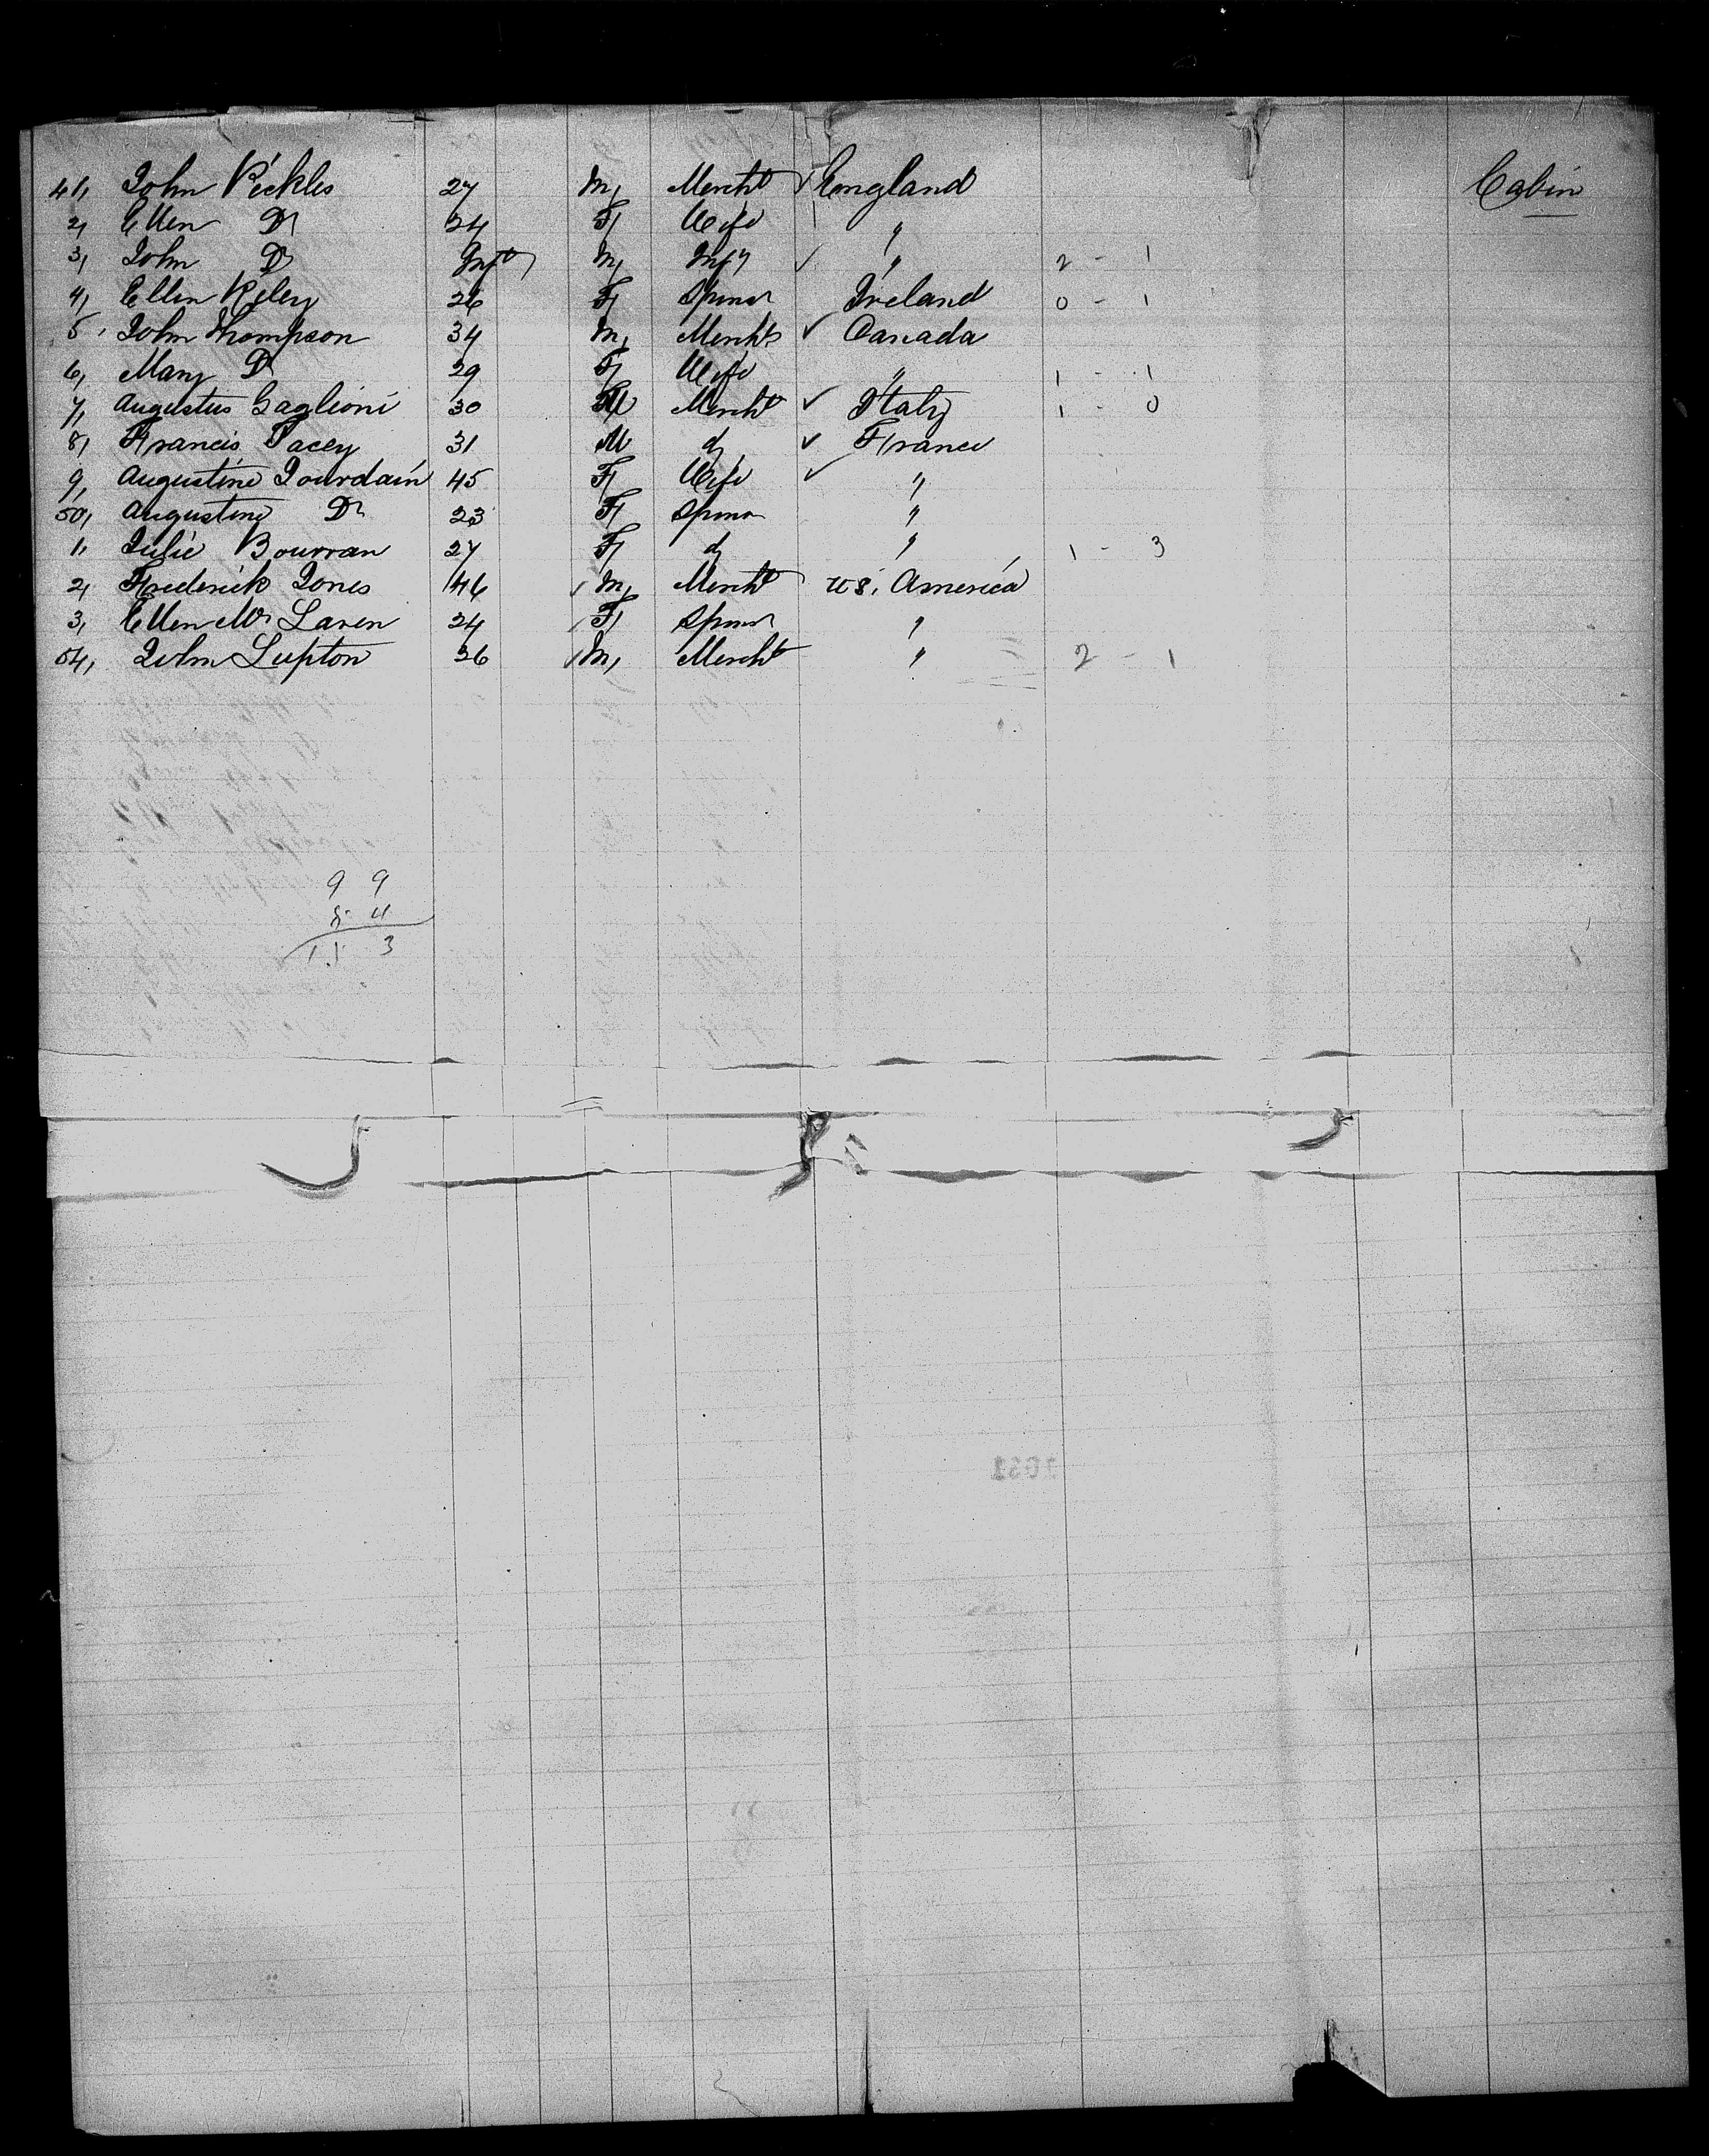 41, John Pickles 27 M, Mercht ✓ England Cabin
2, Ellen Do 24 F, Wife "
3, John Do Inft M, Inft ✓ " 2 - 1
4, Ellen Kiley 26 F, Spinsr Ireland 0 - 1
5, John Thompson 34 M, Mercht ✓ Canada
6, Mary Do 29 F, Wife " 1 - 1
7, Augustus Gaglioni 30 M Mercht ✓ Italy 1 - 0
8, Francis Tacey 31 M do ✓ France
9, Augustine Jourdain 45 F, Wife ✓ "
50, Augustine Do 23 F, Spinsr "
1, Julie Bourran 27 F, do " 1 - 3
2, Frederick Jones 46 M, Mercht U S. America
3, Ellen Mc Laren 24 F, Spinsr "
54, John Lupton 26 M, Mercht " 2 - 1
9 9
5 4
1 5 3